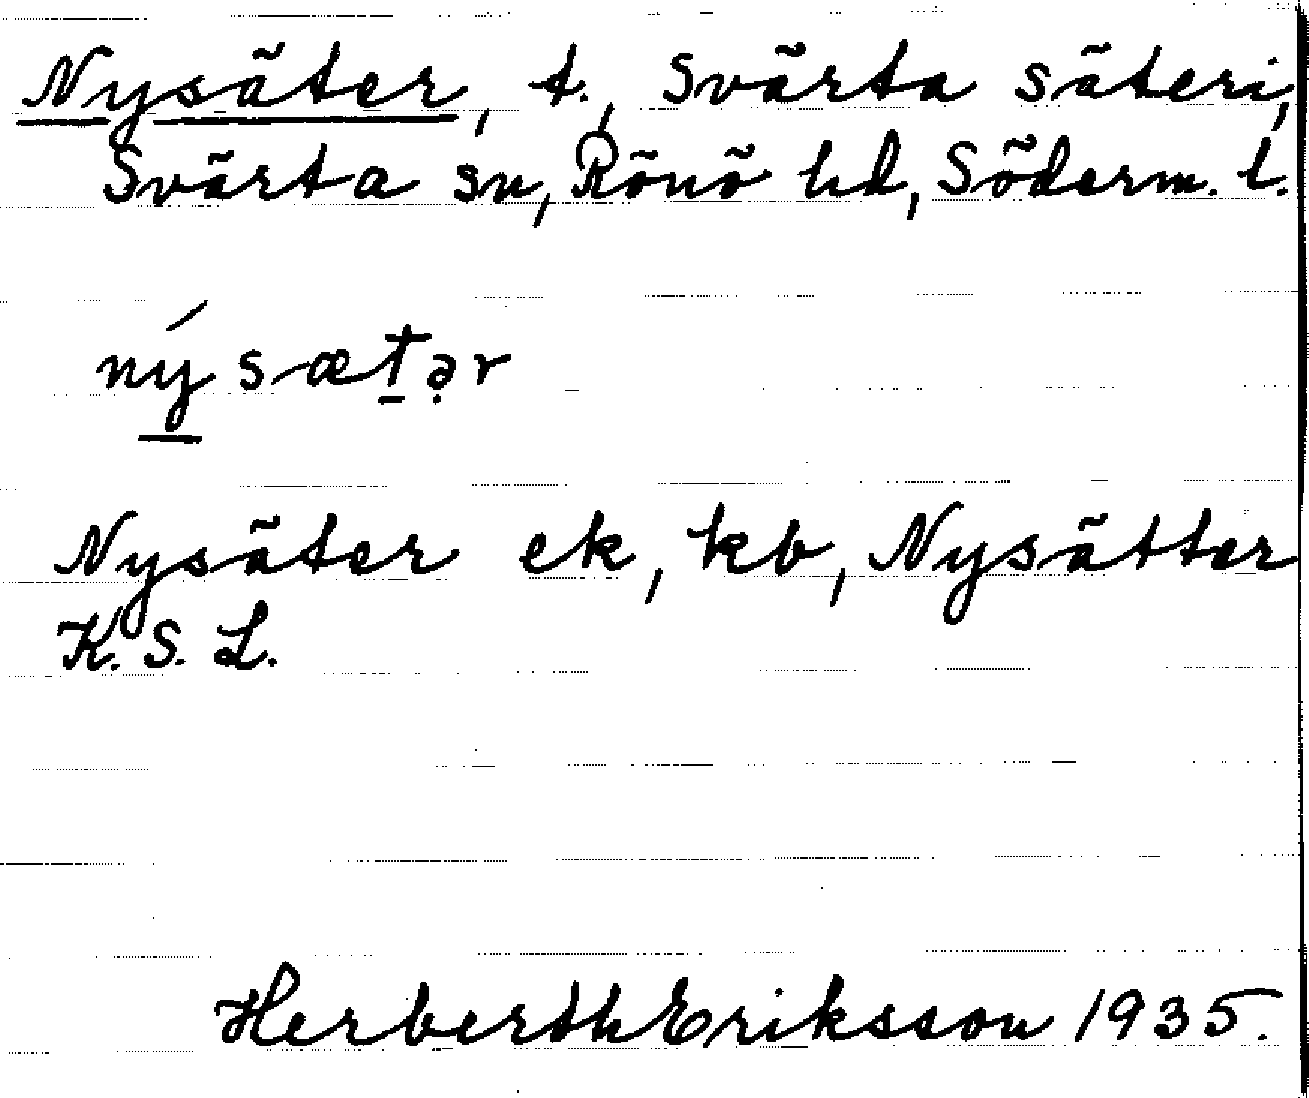 Nysäter, t., Svärta säteri,
Svärta sn, Rönö hd, Söderm. l.
nýsætər
Nysäter ek, kb, Nysätter
K. S. L.
Herberth Eriksson 1935.